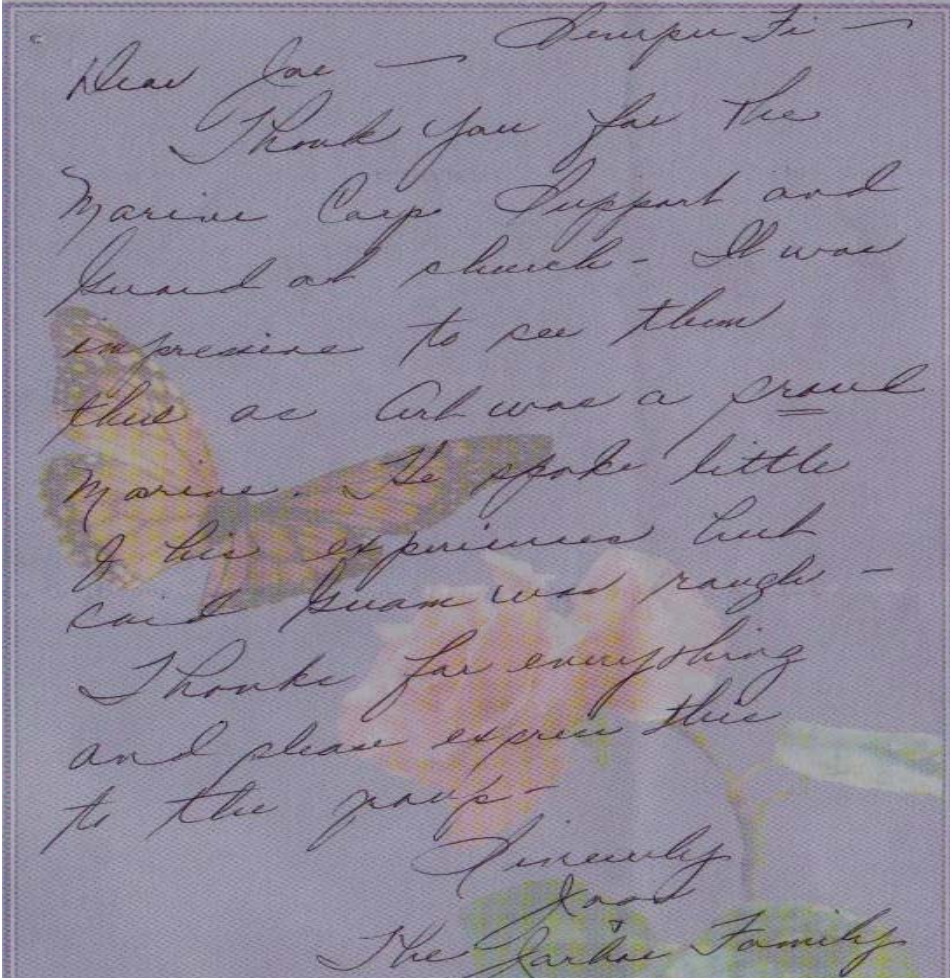 Dear Joe — Semper Fi —
Thank you for the
Marine Corp Support and
Guard at church - It was
impressive to see them
there as Art was a proud
Marine. He spoke little
of his experiences but
said Guam was rough -
Thanks for everything
and please express this
to the group -
Sincerely
Joan
The Family